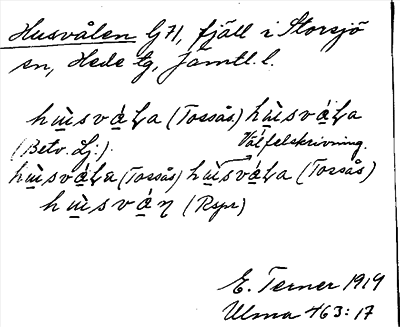 Husvålen G 71, fjäll i Storsjö
sn, Hede tg, Jämtl. l.
hùsvàLa (Tossås) hùsváLa
(Betv. Lj.). Väl felskrivning.
hùsváLa (Tossås) hùsváLa (Tossås)
hùsváη (Rspr)
E. Terner 1919
Ulma 463:17